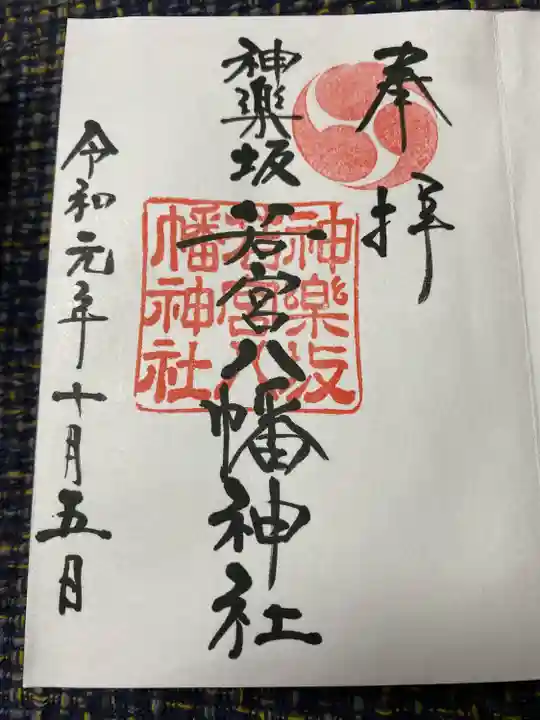 奉拝
神樂坂若宮八幡神社
神楽坂
若宮八
幡神社
令和元年十月五日